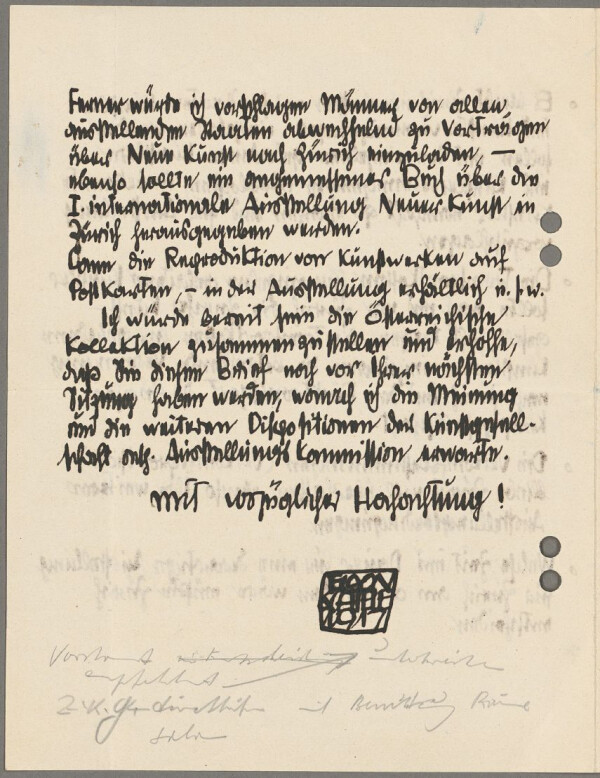 Ferner würde ich vorschlagen Männer von allen
ausstellenden Staaten abwechselnd zu Vorträgen
über Neue Kunst nach Zürich einzuladen, —
ebenso sollte ein angemessenes Buch über die
I. internationale Ausstellung Neuer Kunst in
Zürich herausgegeben werden.
Dann die Reproduktion von Kunstwerken auf
Postkarten, – in der Ausstellung erhältlich u. s. w.
Ich würde bereit sein die Österreichische
Kollektion zusammenzustellen und erhoffe,
daß Sie diesen Brief noch vor Ihrer nächsten
Sitzung haben werden, wonach ich die Meinung
und die weiteren Dispositionen der Kunstgesell-
schaft resp. Ausstellungskommission erwarte.
Mit vorzüglicher Hochachtung!
EGON
1917
Vorstand
empfiehlt